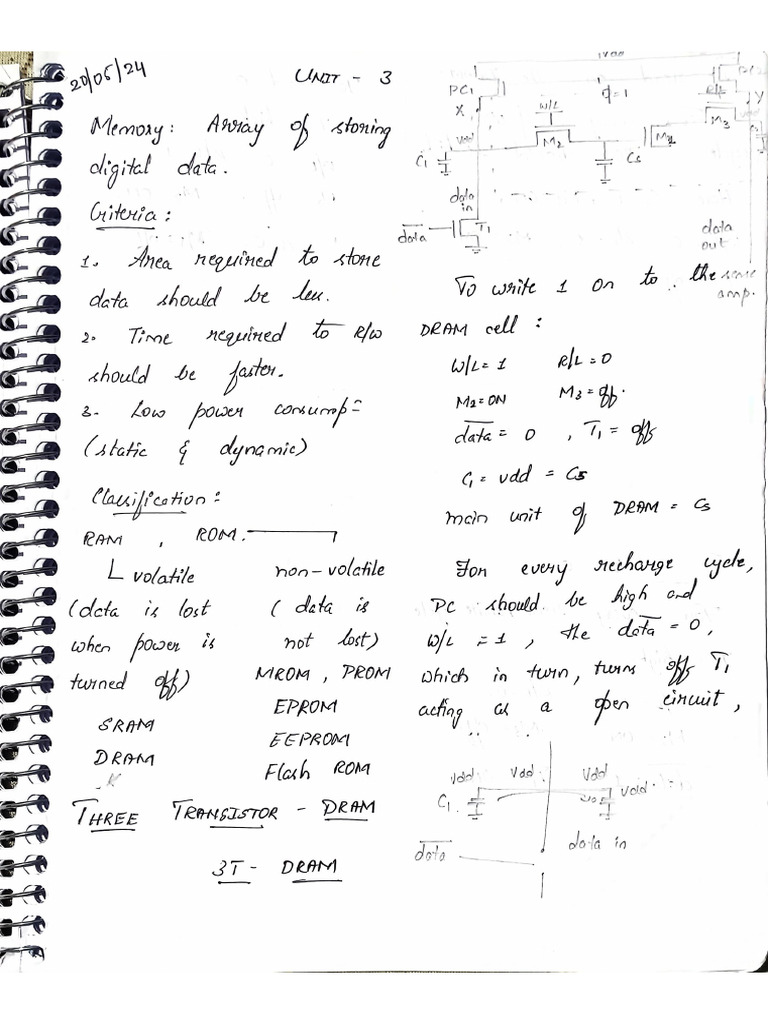 20/05/24
UNIT - 3
Memory: Array of storing
digital data.
Criteria:
1. Area required to store
data should be less.
2. Time required to R/W
should be faster.
3. Low power consump=
(static & dynamic)
Classification:
RAM , ROM.
volatile non-volatile
(data is lost ( data is
when power is not lost)
turned off) MROM , PROM
EPROM
SRAM EEPROM
DRAM Flash ROM
THREE TRANSISTOR - DRAM
3T - DRAM
PC1
X
W/L
R/L
Y
Vdd
M2
M3
C1
Cs
data
in
data
T1
data
out
To write 1 on to the
amp.
DRAM cell:
W/L = 1 R/L = 0
M2 = ON M3 = off.
data = 0 , T1 = off
C1 = vdd = Cs
main unit of DRAM = Cs
For every recharge cycle,
PC should be high and
W/L = 1 , the data = 0,
which in turn, turns off T1
acting as a open circuit,
Vdd Vdd Vdd
C1
data
data in